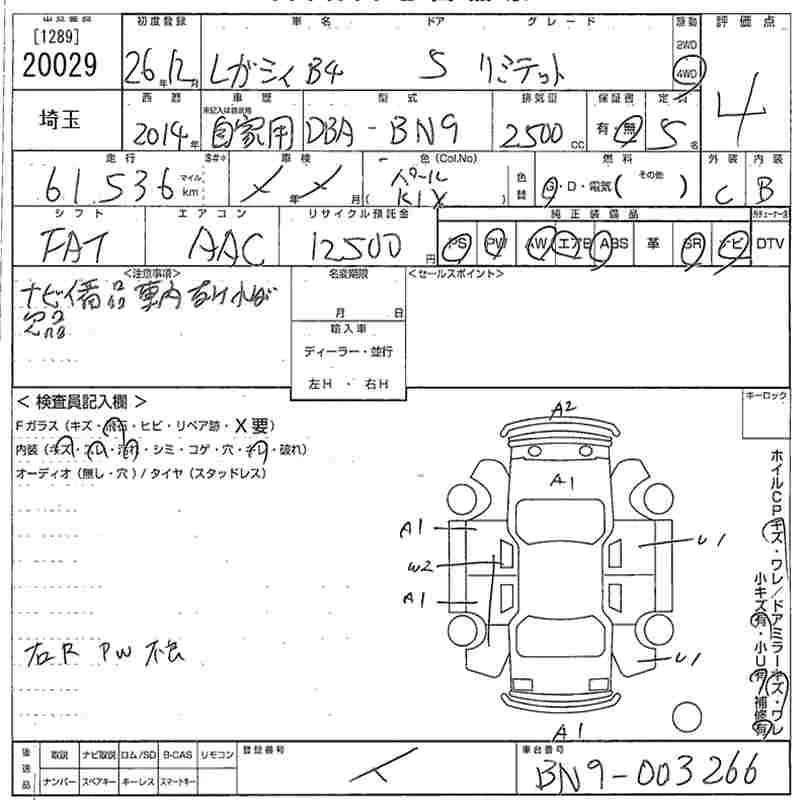 [1289]
20029
初度登録 車名 ドア グレード 駆動 評価点
26年12月 レガシィ B4 S リミテット 2WD 4WD 4
埼玉
西暦 車歴 型式 排気量 保証書 定員
未記入は自家用
2014年 自家用 DBA-BN9 2500cc 有・無 5名
走行 S#* 車検 色(Col.No) 燃料 外装 内装
61,536 マイル km 年 月 パール 色替 G・D・電気( その他 ) C B
( K1X )
シフト エアコン リサイクル預託金 純正装備品
FAT AAC 12500円 PS PW AW エアB ABS 革 SR ナビ DTV
<注意事項> 名変期限 <セールスポイント>
ナビ備品 車内なければ
欠品
月 日
輸入車
ディーラー・並行
左H ・ 右H
<検査員記入欄> キーロック
Fガラス(キズ・飛石・ヒビ・リペア跡・X要)
内装(キズ・スレ・汚れ・シミ・コゲ・穴・キレ・破れ)
オーディオ(無し・穴)/タイヤ(スタッドレス)
A2
A1
A1
U1
W2
A1
U1
A1
右R PW 不良
ホイルCPキズ・ワレ/ドアミラーキズ・ワレ
小キズ有・小U有・補修有
後送品 取説 ナビ取説 ロム/SD B-CAS リモコン 登録番号 車台番号
ナンバー スペアキー キーレス スマートキー BN9-003266